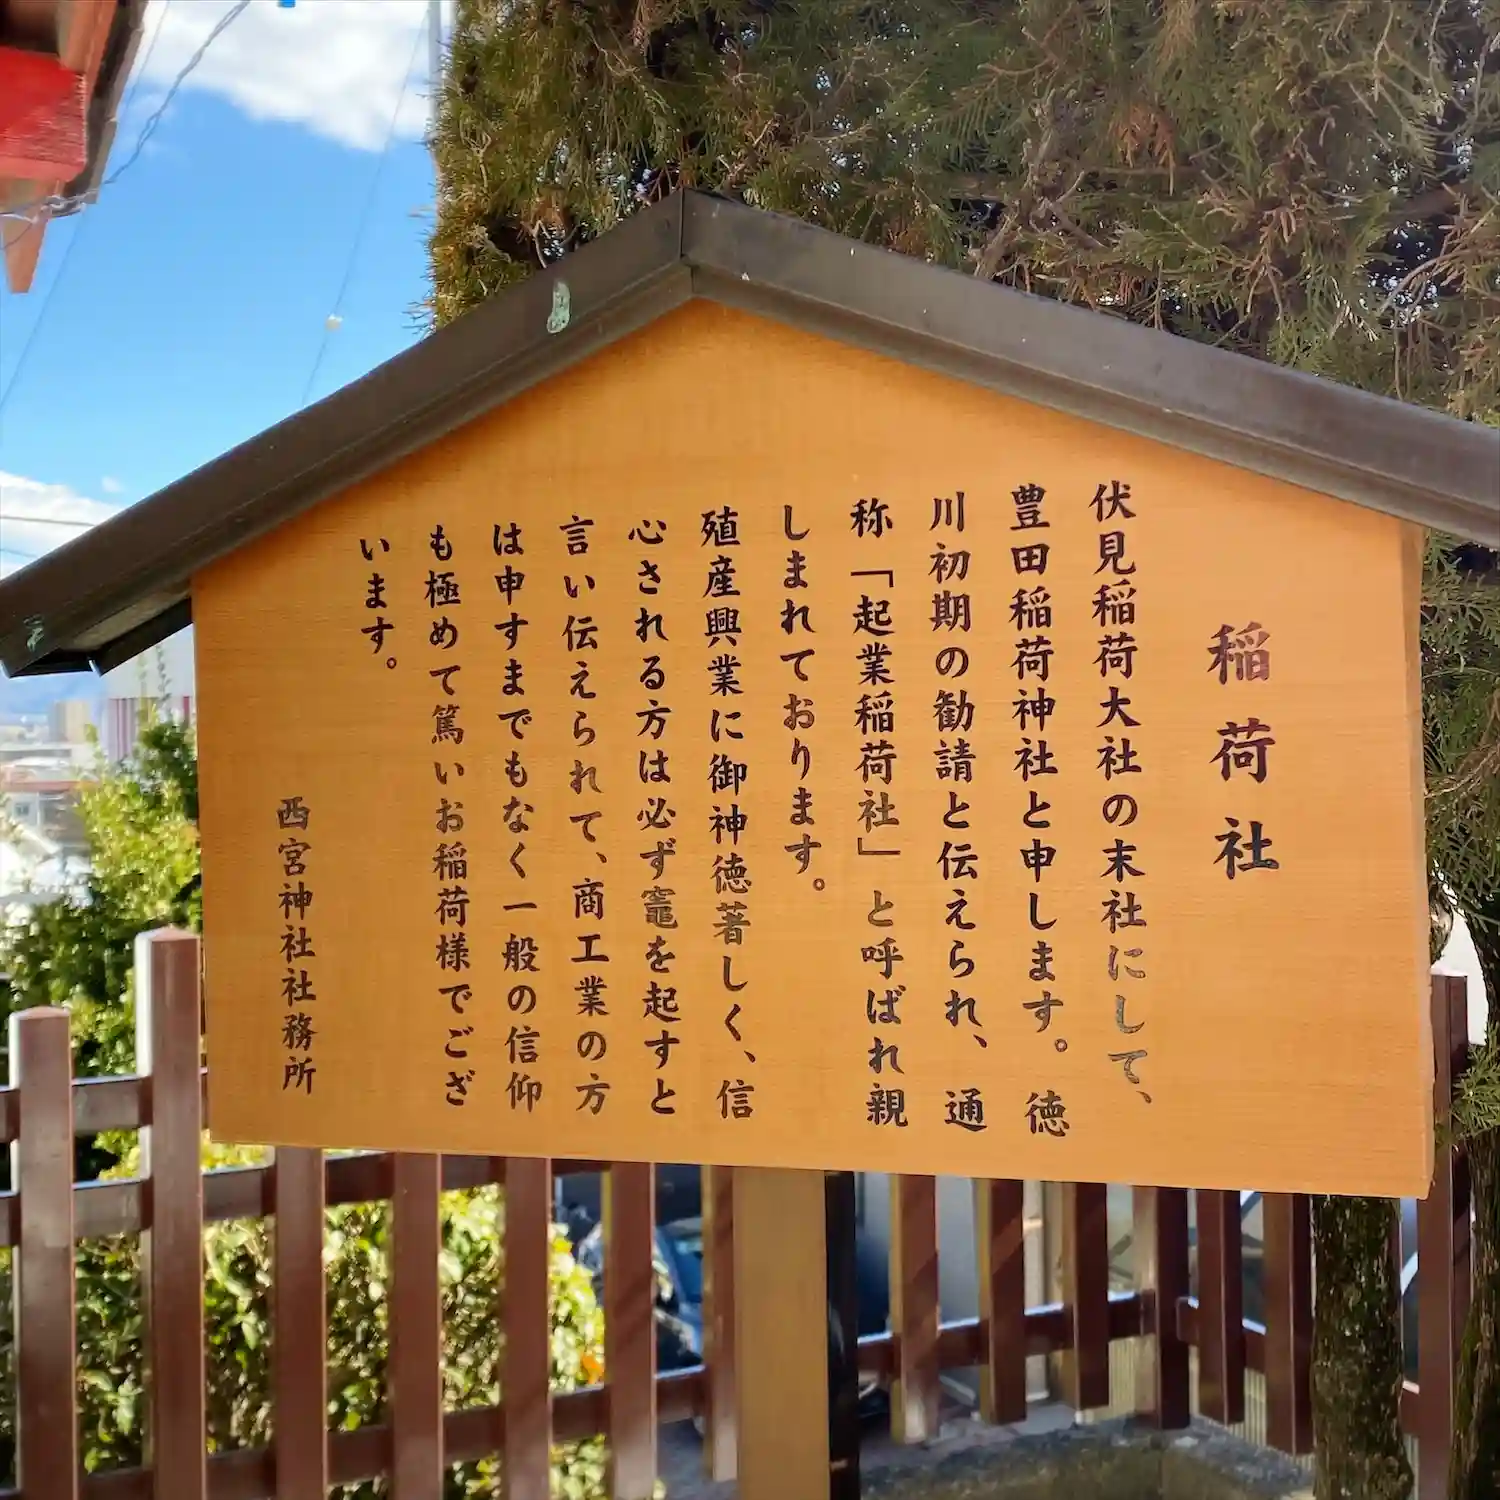 稲荷社
伏見稲荷大社の末社にして、
豊田稲荷神社と申します。徳
川初期の勧請と伝えられ、通
称「起業稲荷社」と呼ばれ親
しまれております。
殖産興業に御神徳著しく、信
心される方は必ず竈を起すと
言い伝えられて、商工業の方
は申すまでもなく一般の信仰
も極めて篤いお稲荷様でござ
います。
西宮神社社務所